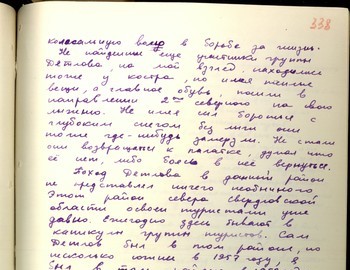 338
колоссальную волю в борьбе за жизнь.
Не найденные еще участники группы
Дятлова, на мой взгляд, находились
тоже у костра, но имея теплые
вещи, а главное обувь, пошли в
направлении 2 северного на свою
лыжню. Не имея сил бороться с
глубоким снегом без лыж они
тоже где-нибудь замерзли. Не стали
они возвращаться к палатке, думая что
её нет, либо боясь в нее вернуться.
Поход Дятлова в данный район
не представлял ничего необычного.
Этот район севера Свердловской
области освоен туристами уже
давно. Ежегодно здесь бывают в
каникулы группы туристов. Сам
Дятлов был в том районе, но
несколько южнее в 1957 году, я
был в том районе в